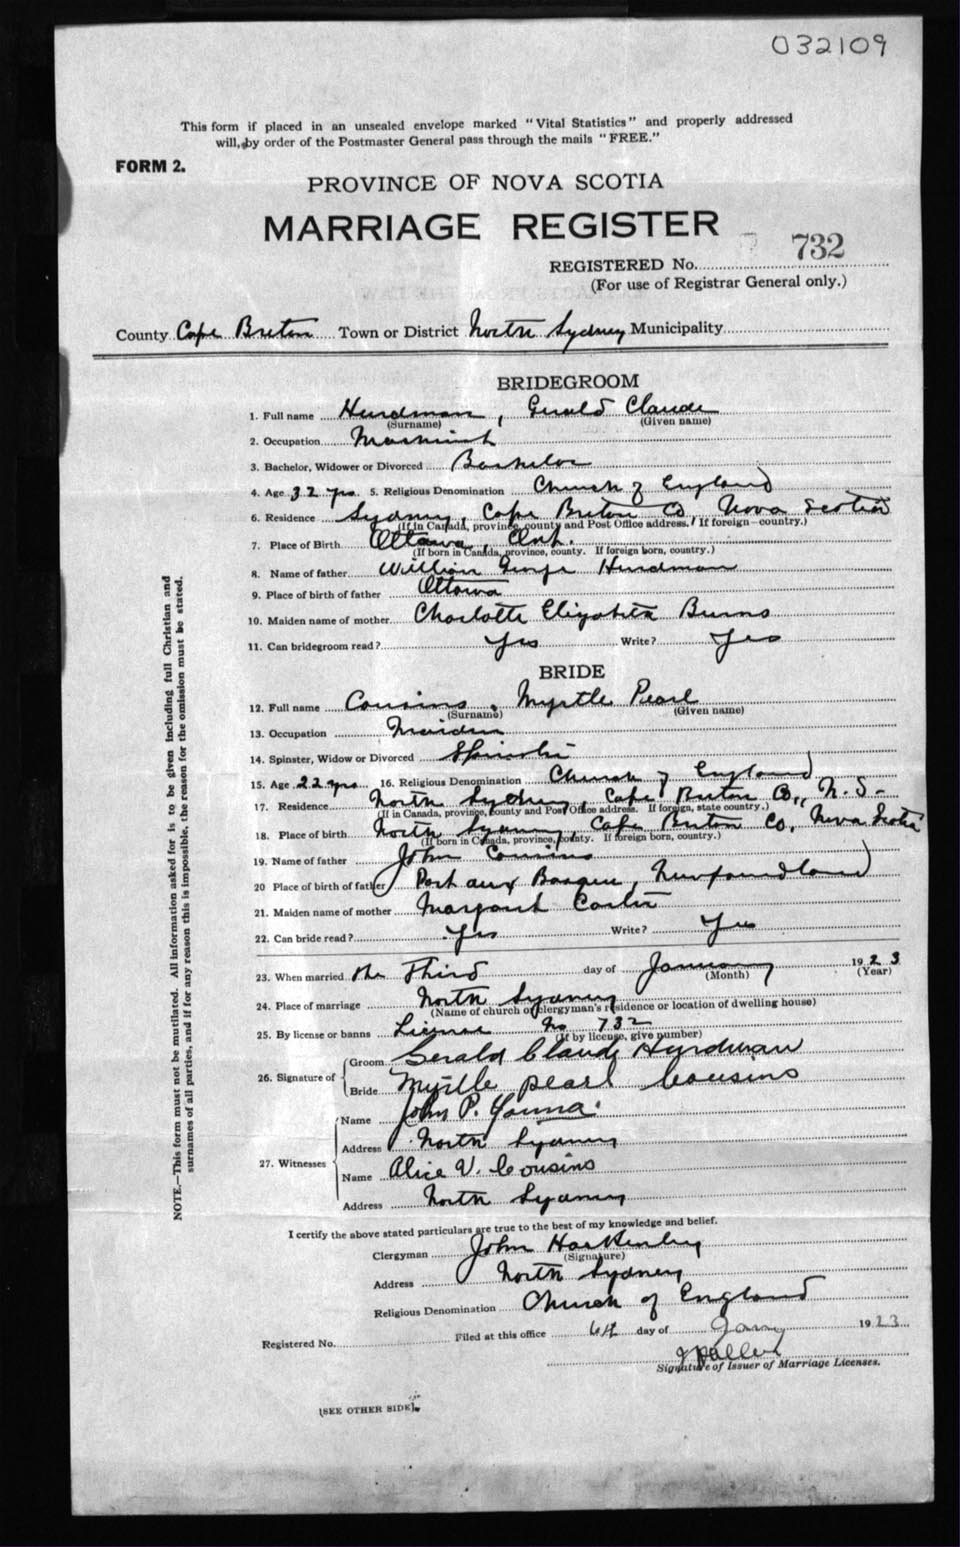 032109
This form if placed in an unsealed envelope marked "Vital Statistics" and properly addressed
will, by order of the Postmaster General pass through the mails "FREE."
FORM 2.
PROVINCE OF NOVA SCOTIA
MARRIAGE REGISTER
732
REGISTERED No.
(For use of Registrar General only.)
County Cape Breton Town or District North Sydney Municipality
BRIDEGROOM
1. Full name Hurdman, Gerald Claude
(Surname) (Given name)
2. Occupation Machinist
3. Bachelor, Widower or Divorced Bachelor
4. Age 32 yrs. 5. Religious Denomination Church of England
6. Residence Sydney, Cape Breton Co Nova Scotia
(If in Canada, province, county and Post Office address. If foreign—country.)
7. Place of Birth Ottawa, Ont.
(If born in Canada, province, county. If foreign born, country.)
8. Name of father William George Hurdman
9. Place of birth of father Ottawa
10. Maiden name of mother Charlotte Elizabeth Burns
11. Can bridegroom read? Yes Write? Yes
BRIDE
12. Full name Cousins, Myrtle Pearl
(Surname) (Given name)
13. Occupation Maiden
14. Spinster, Widow or Divorced Spinster
15. Age 22 yrs. 16. Religious Denomination Church of England
17. Residence North Sydney, Cape Breton Co., N.S.
(If in Canada, province, county and Post Office address. If foreign, state country.)
18. Place of birth North Sydney, Cape Breton Co, Nova Scotia
(If born in Canada, province, county. If foreign born, country.)
19. Name of father John Cousins
20 Place of birth of father Port aux Basque, Newfoundland
21. Maiden name of mother Margaret Carter
22. Can bride read? Yes Write? Yes
23. When married the Third day of January 1923
(Month) (Year)
24. Place of marriage North Sydney
(Name of church or clergyman's residence or location of dwelling house)
25. By license or banns License No 732
(If by license, give number)
26. Signature of
Groom Gerald Claude Hurdman
Bride Myrtle Pearl Cousins
27. Witnesses
Name John P. Young
Address North Sydney
Name Alice V. Cousins
Address North Sydney
I certify the above stated particulars are true to the best of my knowledge and belief.
Clergyman John
(Signature)
Address North Sydney
Religious Denomination Church of England
Registered No. Filed at this office 4th day of Jany 1923
Signature of Issuer of Marriage Licenses.
[SEE OTHER SIDE]
NOTE.—This form must not be mutilated. All information asked for is to be given including full Christian and
surnames of all parties, and if for any reason this is impossible, the reason for the omission must be stated.